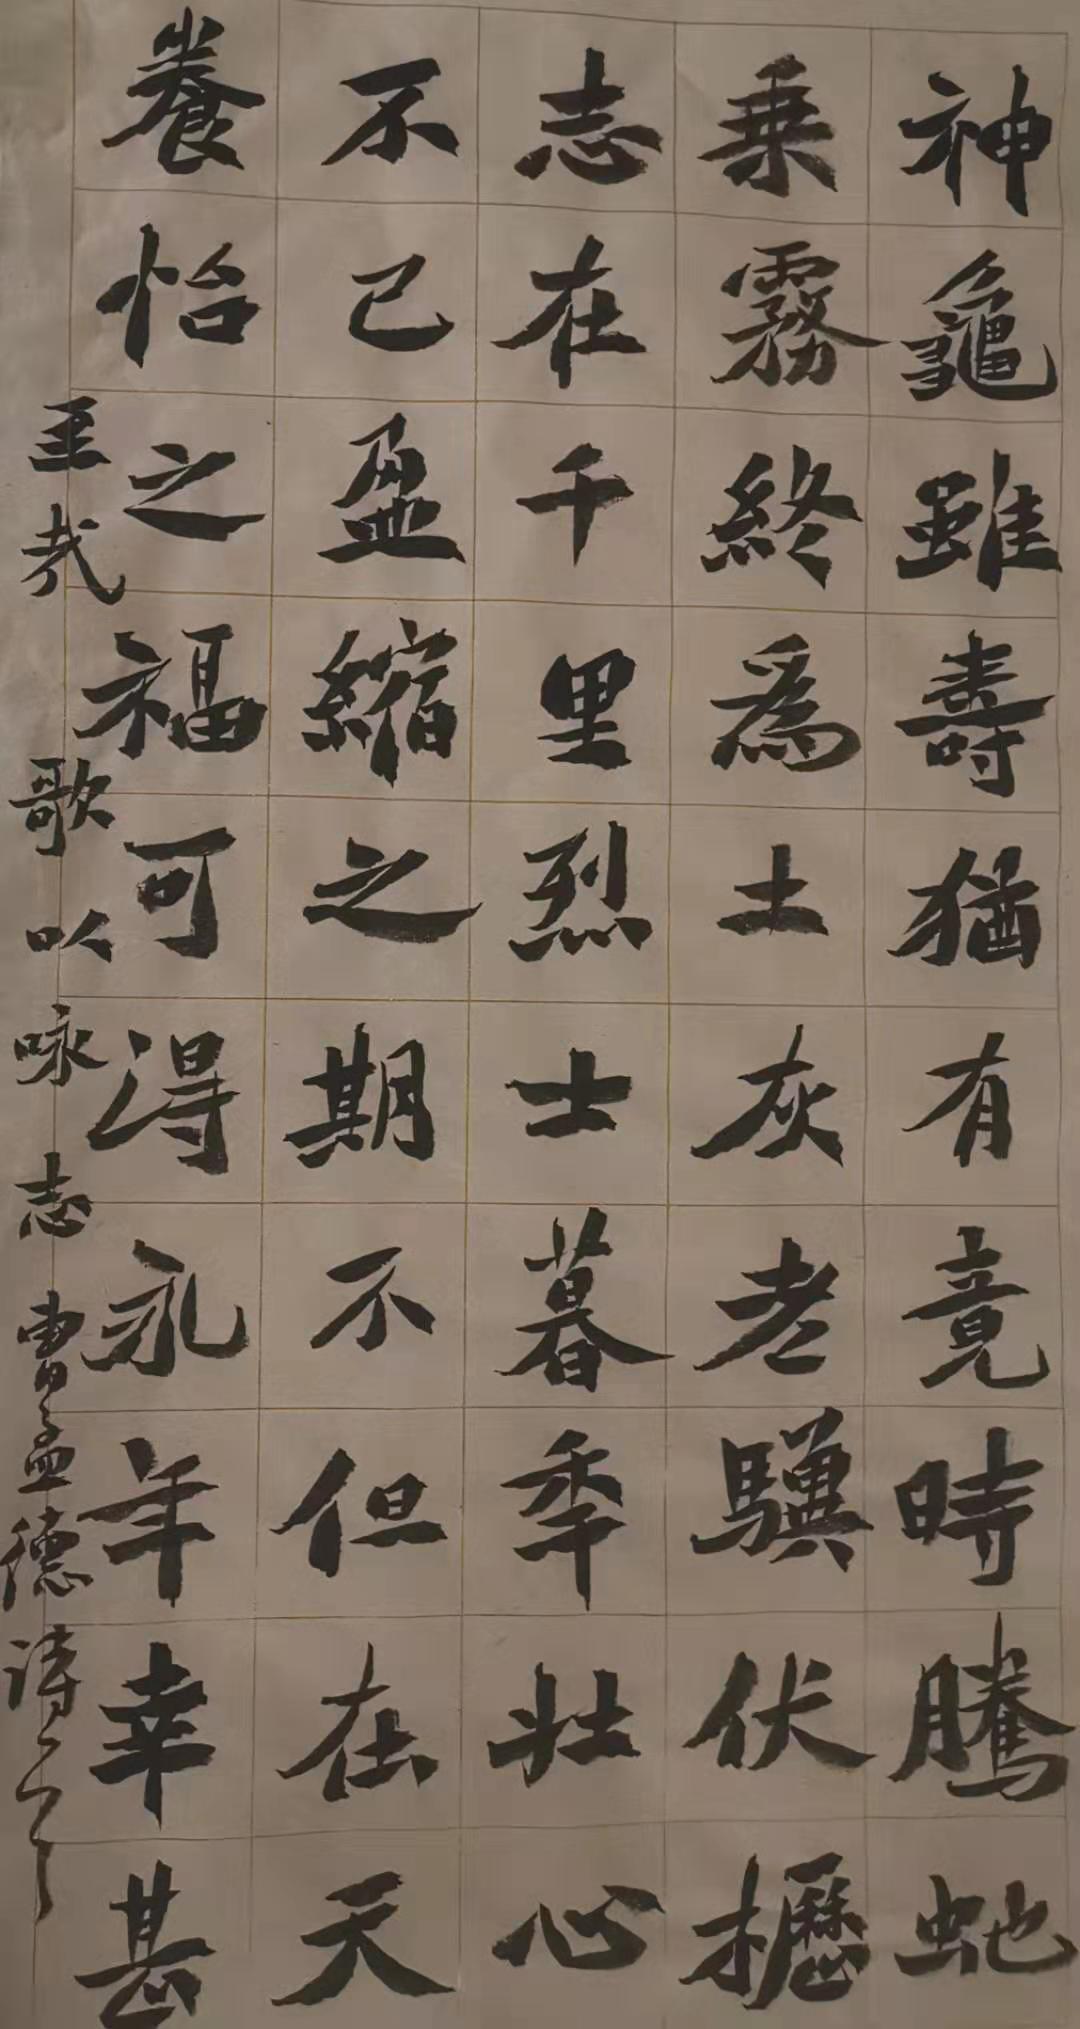 神龜雖壽猶有竟時騰虵
乗霧終爲土灰老驥伏櫪
志在千里烈士暮秊壯心
不已盈縮之期不但在天
養怡之福可得永年幸甚
至哉歌以咏志曹孟德诗